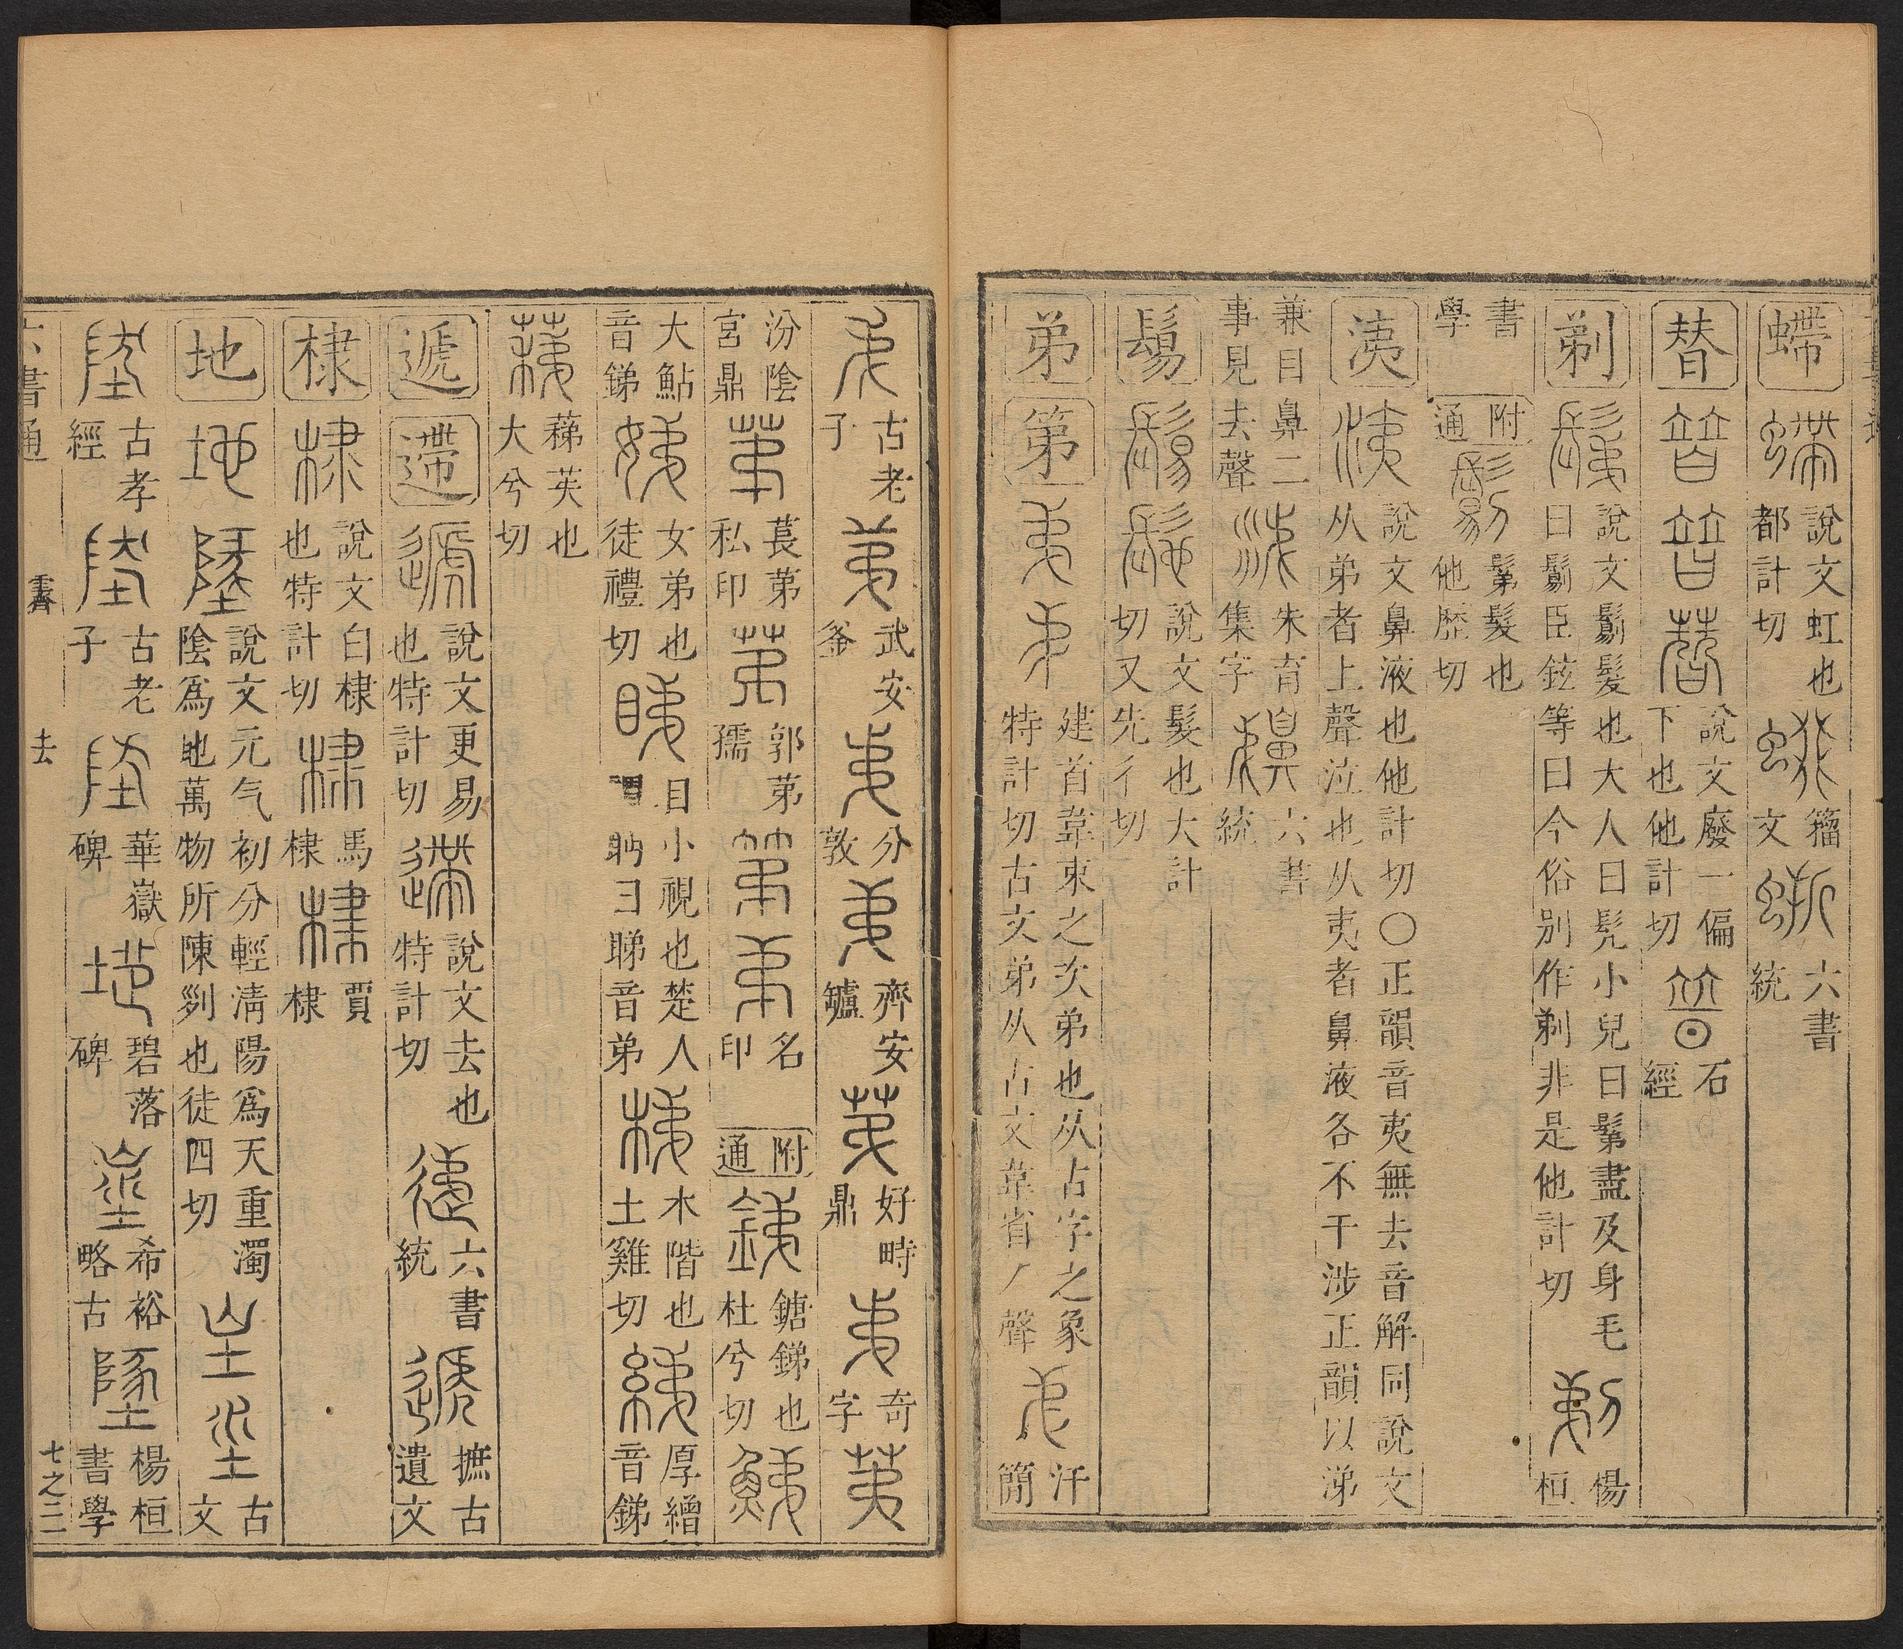 螮 說文虹也都計切 籀文 六書統
替 說文廢一偏下也他計切 石經
剃 說文鬀髮也大人曰髡小兒曰鬀盡及身毛曰鬄臣鉉等曰今俗别作剃非是他計切 楊桓
書學 附通 鬀髮也他歷切
洟 說文鼻液也他計切〇正韻音夷無去音解同說文从弟者上聲泣也从夷者鼻液各不干涉正韻以涕
兼目鼻二事見去聲 朱育集字 六書統
鬄 說文髲也大計切又先彳切
弟 第 建首韋束之次弟也从古字之象特計切古文弟从古文韋省丿聲 汗簡
古老子 武安釜 分敦 齊安鑪 好畤鼎 奇字
汾陰宮鼎 萇苐私印 郭苐孺 名印 附通 鎕銻也杜兮切
大鮎音銻 女弟也徒禮切 目小視也楚人謂眄曰睇音弟 木階也土雞切 厚繒音銻
蕛苵也大兮切
遞 遰 說文更易也特計切 說文去也特計切 六書統 摭古遺文
棣 說文白棣也特計切 馬棣 賈棣
地 說文元气初分輕淸陽爲天重濁陰爲地萬物所陳𠛱也徒四切 古文
古孝經 古老子 華嶽碑 碧落碑 希裕略古 楊桓書學
六書通 霽 去 七之二